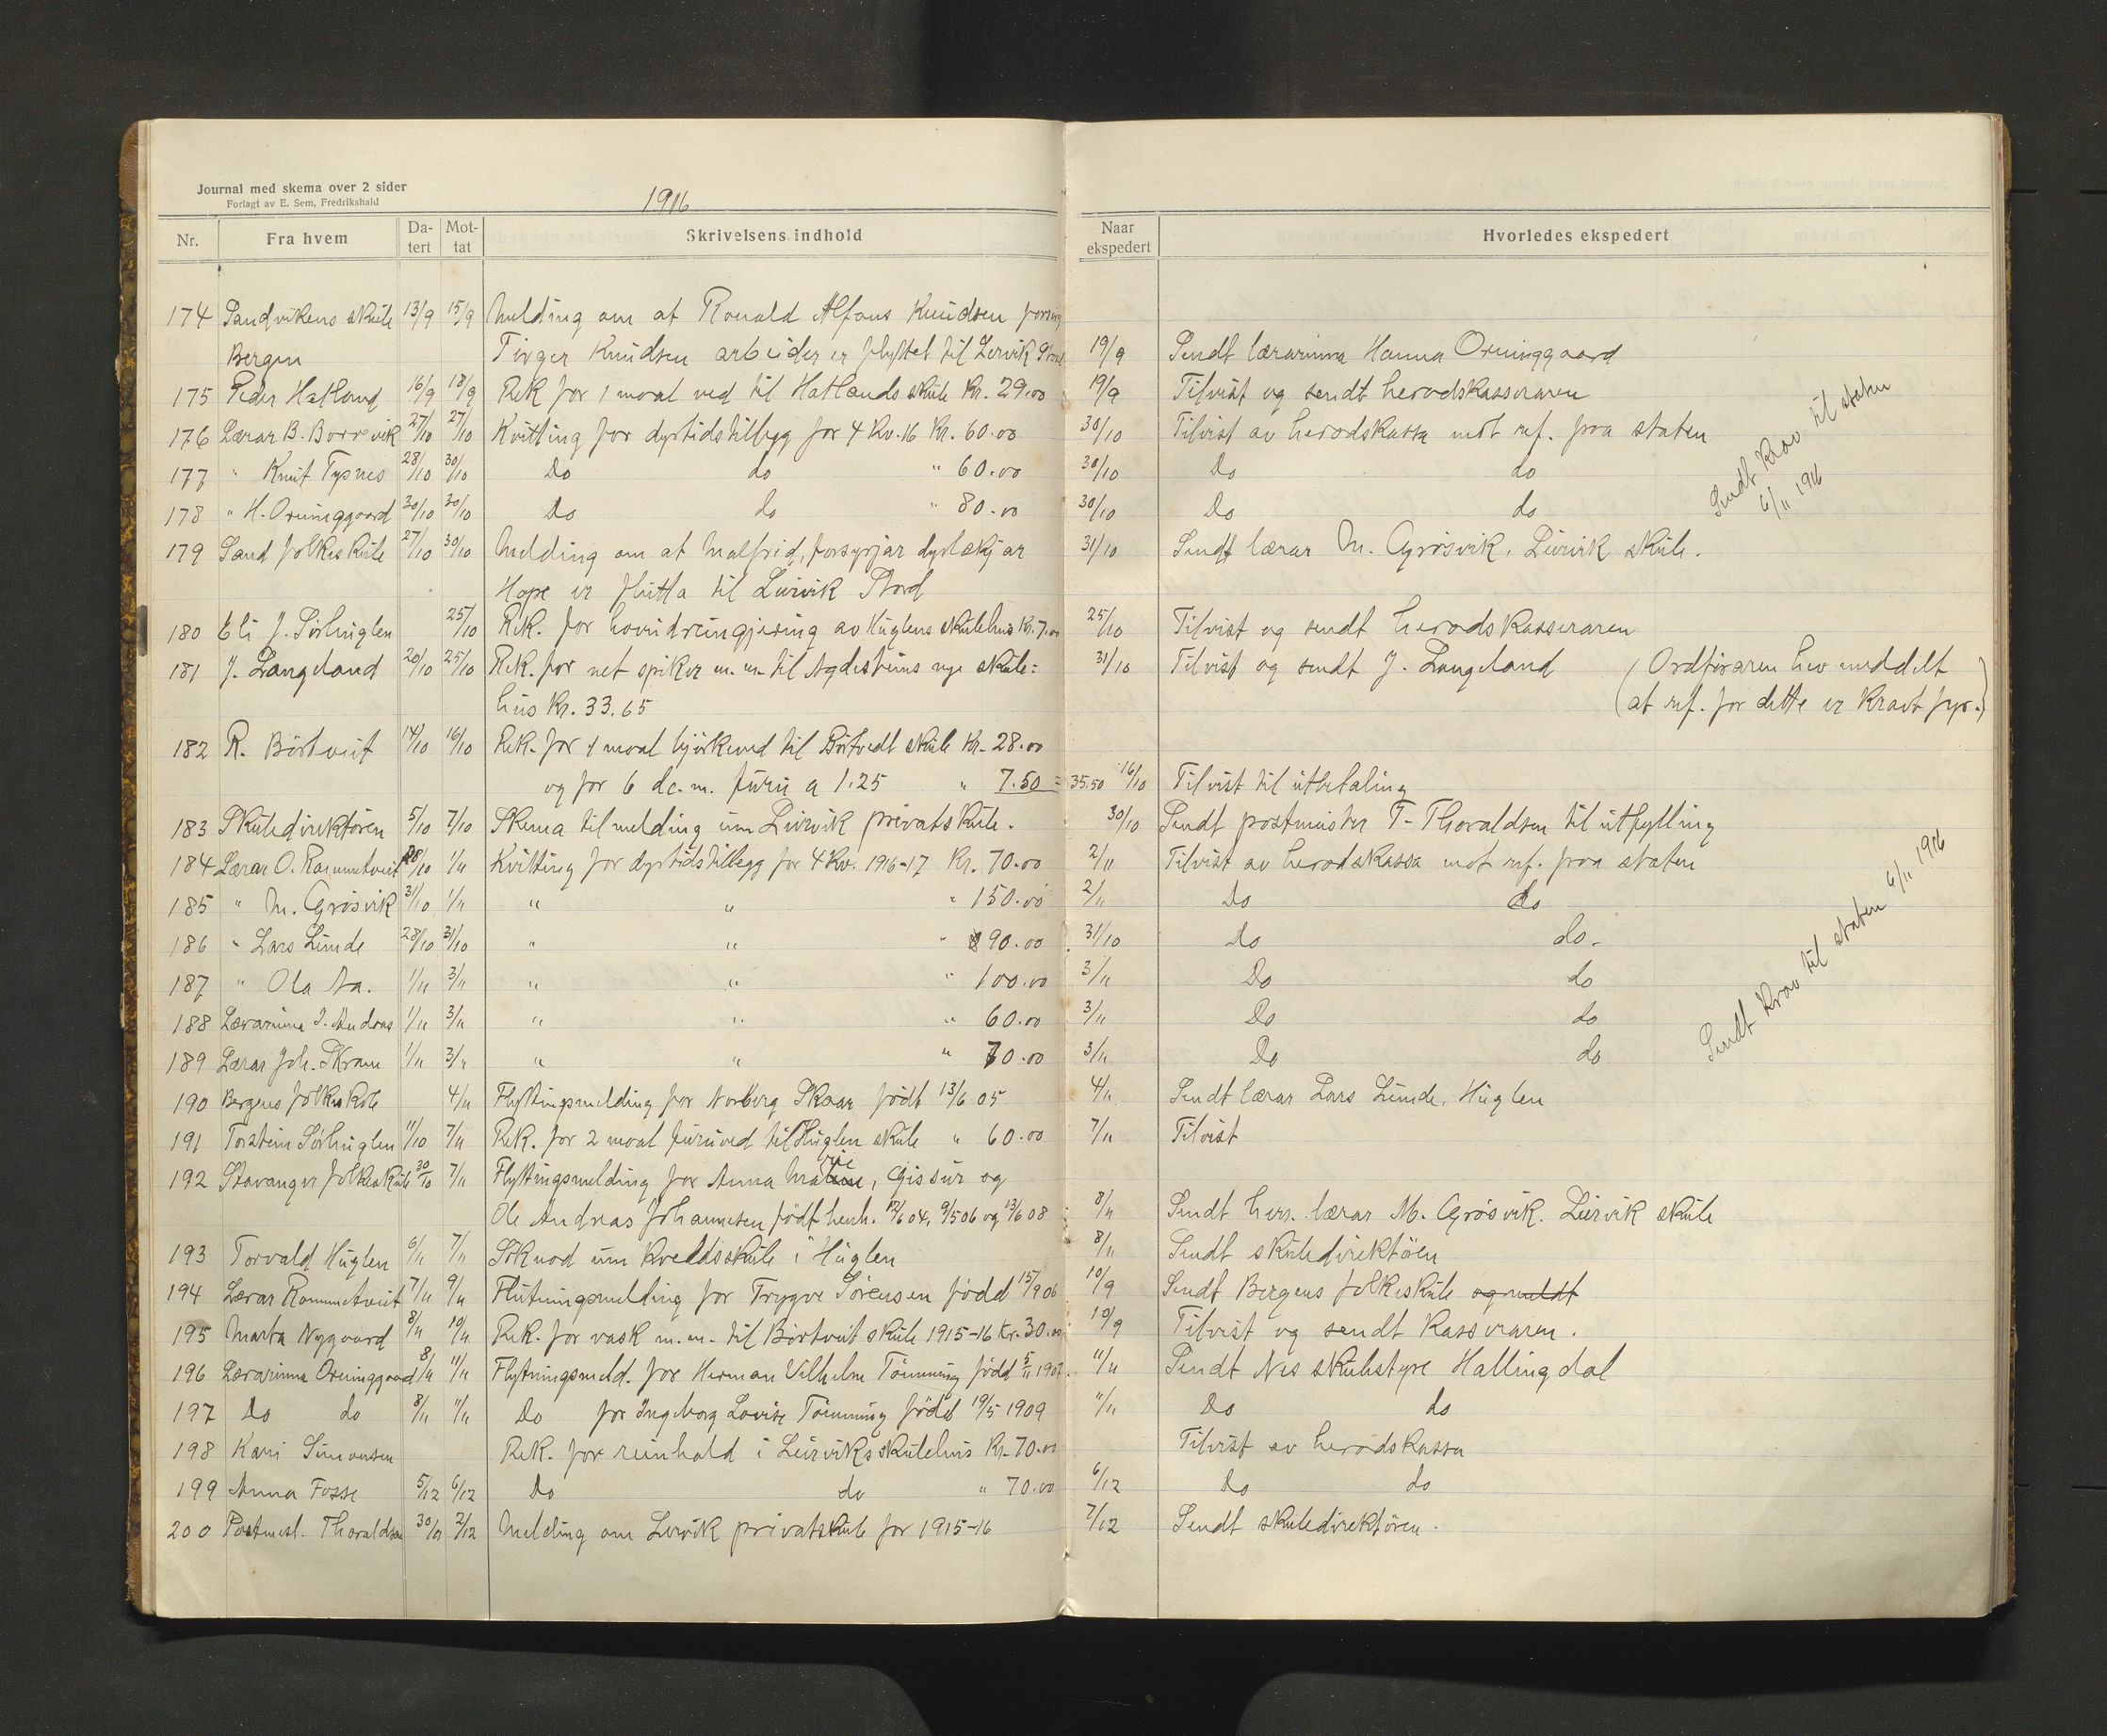 Journal med skema over 2 sider
Forlagt av E. Sem, Fredrikshald
1916
Nr. Fra hvem Da-tert Mot-tat Skrivelsens indhold Naar ekspedert Hvorledes ekspedert
174 Sandvikens skule 13/9 15/9 Melding om at Ronald Alfons Knudsen
Bergen Knudsen arbeider er flyttet til Lervik Stord 19/9 Sendt lærarinna Hanna Orninggaard
175 Peder Hatland 16/9 18/9 Rek for 1 maal ved til Hatlands skule Kr. 29.00 19/9 Tilvist og sendt heradskasseraren
176 Lærar B. Borrevik 27/10 27/10 Kvitting for dyrtidstillegg for 4 Kv. 16 Kr. 60.00 30/10 Tilvist av heradskassa mot ref. fraa staten
177 " Knut Tysnes 28/10 30/10 Do do " 60.00 30/10 Do do
178 " H. Orninggaard 30/10 30/10 Do do " 80.00 30/10 Do do
Sendt Krav til staten
6/11 1916
179 Sand folkeskule 27/10 30/10 Melding om at Malfrid, forsyrjar dyrlækjar 31/10 Sendt lærar M. Grösvik, Lürvik skule.
Hope er flutta til Lürvik Stord
180 Eli J. Sörhuglen 25/10 Rek. for hovudreingjering av Huglens skulehus Kr. 7.00 25/10 Tilvist og sendt heradskasseraren
181 J. Langeland 20/10 25/10 Rek. for net spiker m.m. til Agdesteins nye skule= 31/10 Tilvist og sendt J. Langeland (Ordföraren hev meddelt
hus Kr. 33.65 (at ref. for dette er kravt fyr.)
182 R. Börtveit 14/10 16/10 Rek. for 1 maal björkeved til Börtvedt skule Kr. 28.00
og for 6 dc.m. furu a 1.25 " 7.50 = 35.50 16/10 Tilvist til utbetaling
183 Skuledirektören 5/10 7/10 Skema til melding um Lürvik privatskule. 30/10 Sendt postmester T. Thoraldsen til utfylling
184 Lærar O. Rommetveit 28/10 1/11 Kvitting for dyrtidstillegg for 4 Kv. 1916-17 Kr. 70.00 2/11 Tilvist av heradskassa mot ref. fraa staten
185 " M. Grösvik 31/10 1/11 " " " 150.00 2/11 Do do
186 " Lars Lunde 28/10 31/10 " " " 90.00 31/10 Do do-
187 " Ola Aa. 1/11 3/11 " " " 100.00 3/11 Do do
188 Lærarinna J. Andraas 1/11 3/11 " " " 60.00 3/11 Do do
189 Lærar Joh. Skram 1/11 3/11 " " " 70.00 3/11 Do do
Sendt Krav til staten 6/11 1916
190 Bergens folkeskole 4/11 Flyttingsmelding for Norberg Skaar født 13/6 05 4/11 Sendt lærar Lars Lunde, Huglen
191 Torstein Sörhuglen 11/10 7/11 Rek. for 2 maal furuved til Huglen skule " 60.00 7/11 Tilvist
192 Stavanger folkeskule 30/10 7/11 Flyttingsmelding for Anna Marie, Gissur og
Ole Andreas Johannesen født henh. 12/6 04, 9/5 06 og 13/6 08 8/11 Sendt herr. lærar M. Grösvik. Lürvik skule
193 Torvald Huglen 6/11 7/11 Söknad um Kveldsskule i Huglen 8/11 Sendt skuledirektören
194 Lærar Rommetveit 7/11 9/11 Flutningsmelding for Trygve Sörensen född 15/9 06 10/9 Sendt Bergens folkeskule og meldt
195 Marta Nygaard 8/11 10/11 Rek. for vask m.m. til Börtveit skule 1915-16 Kr. 30.00 10/9 Tilvist og sendt Kasseraren.
196 Lærarinna Orninggaard 8/11 11/11 Flytningsmeld. for Herman Vilhelm Tönning född 5/11 1907 11/11 Sendt Nes skulestyre Hallingdal
197 Do do 8/11 11/11 Do for Ingeborg Lovise Tönning födt 19/5 1909 11/11 Do do
198 Kari Simonsen Rek. for reinhald i Lürviks skulehus Kr. 70.00 Tilvist av heradskassa
199 Anna Fosse 5/12 6/12 Do do " 70.00 6/12 Do do
200 Postmest. Thoraldsen 30/11 2/12 Melding om Lervik privatskule for 1915-16 7/12 Sendt skuledirektören.